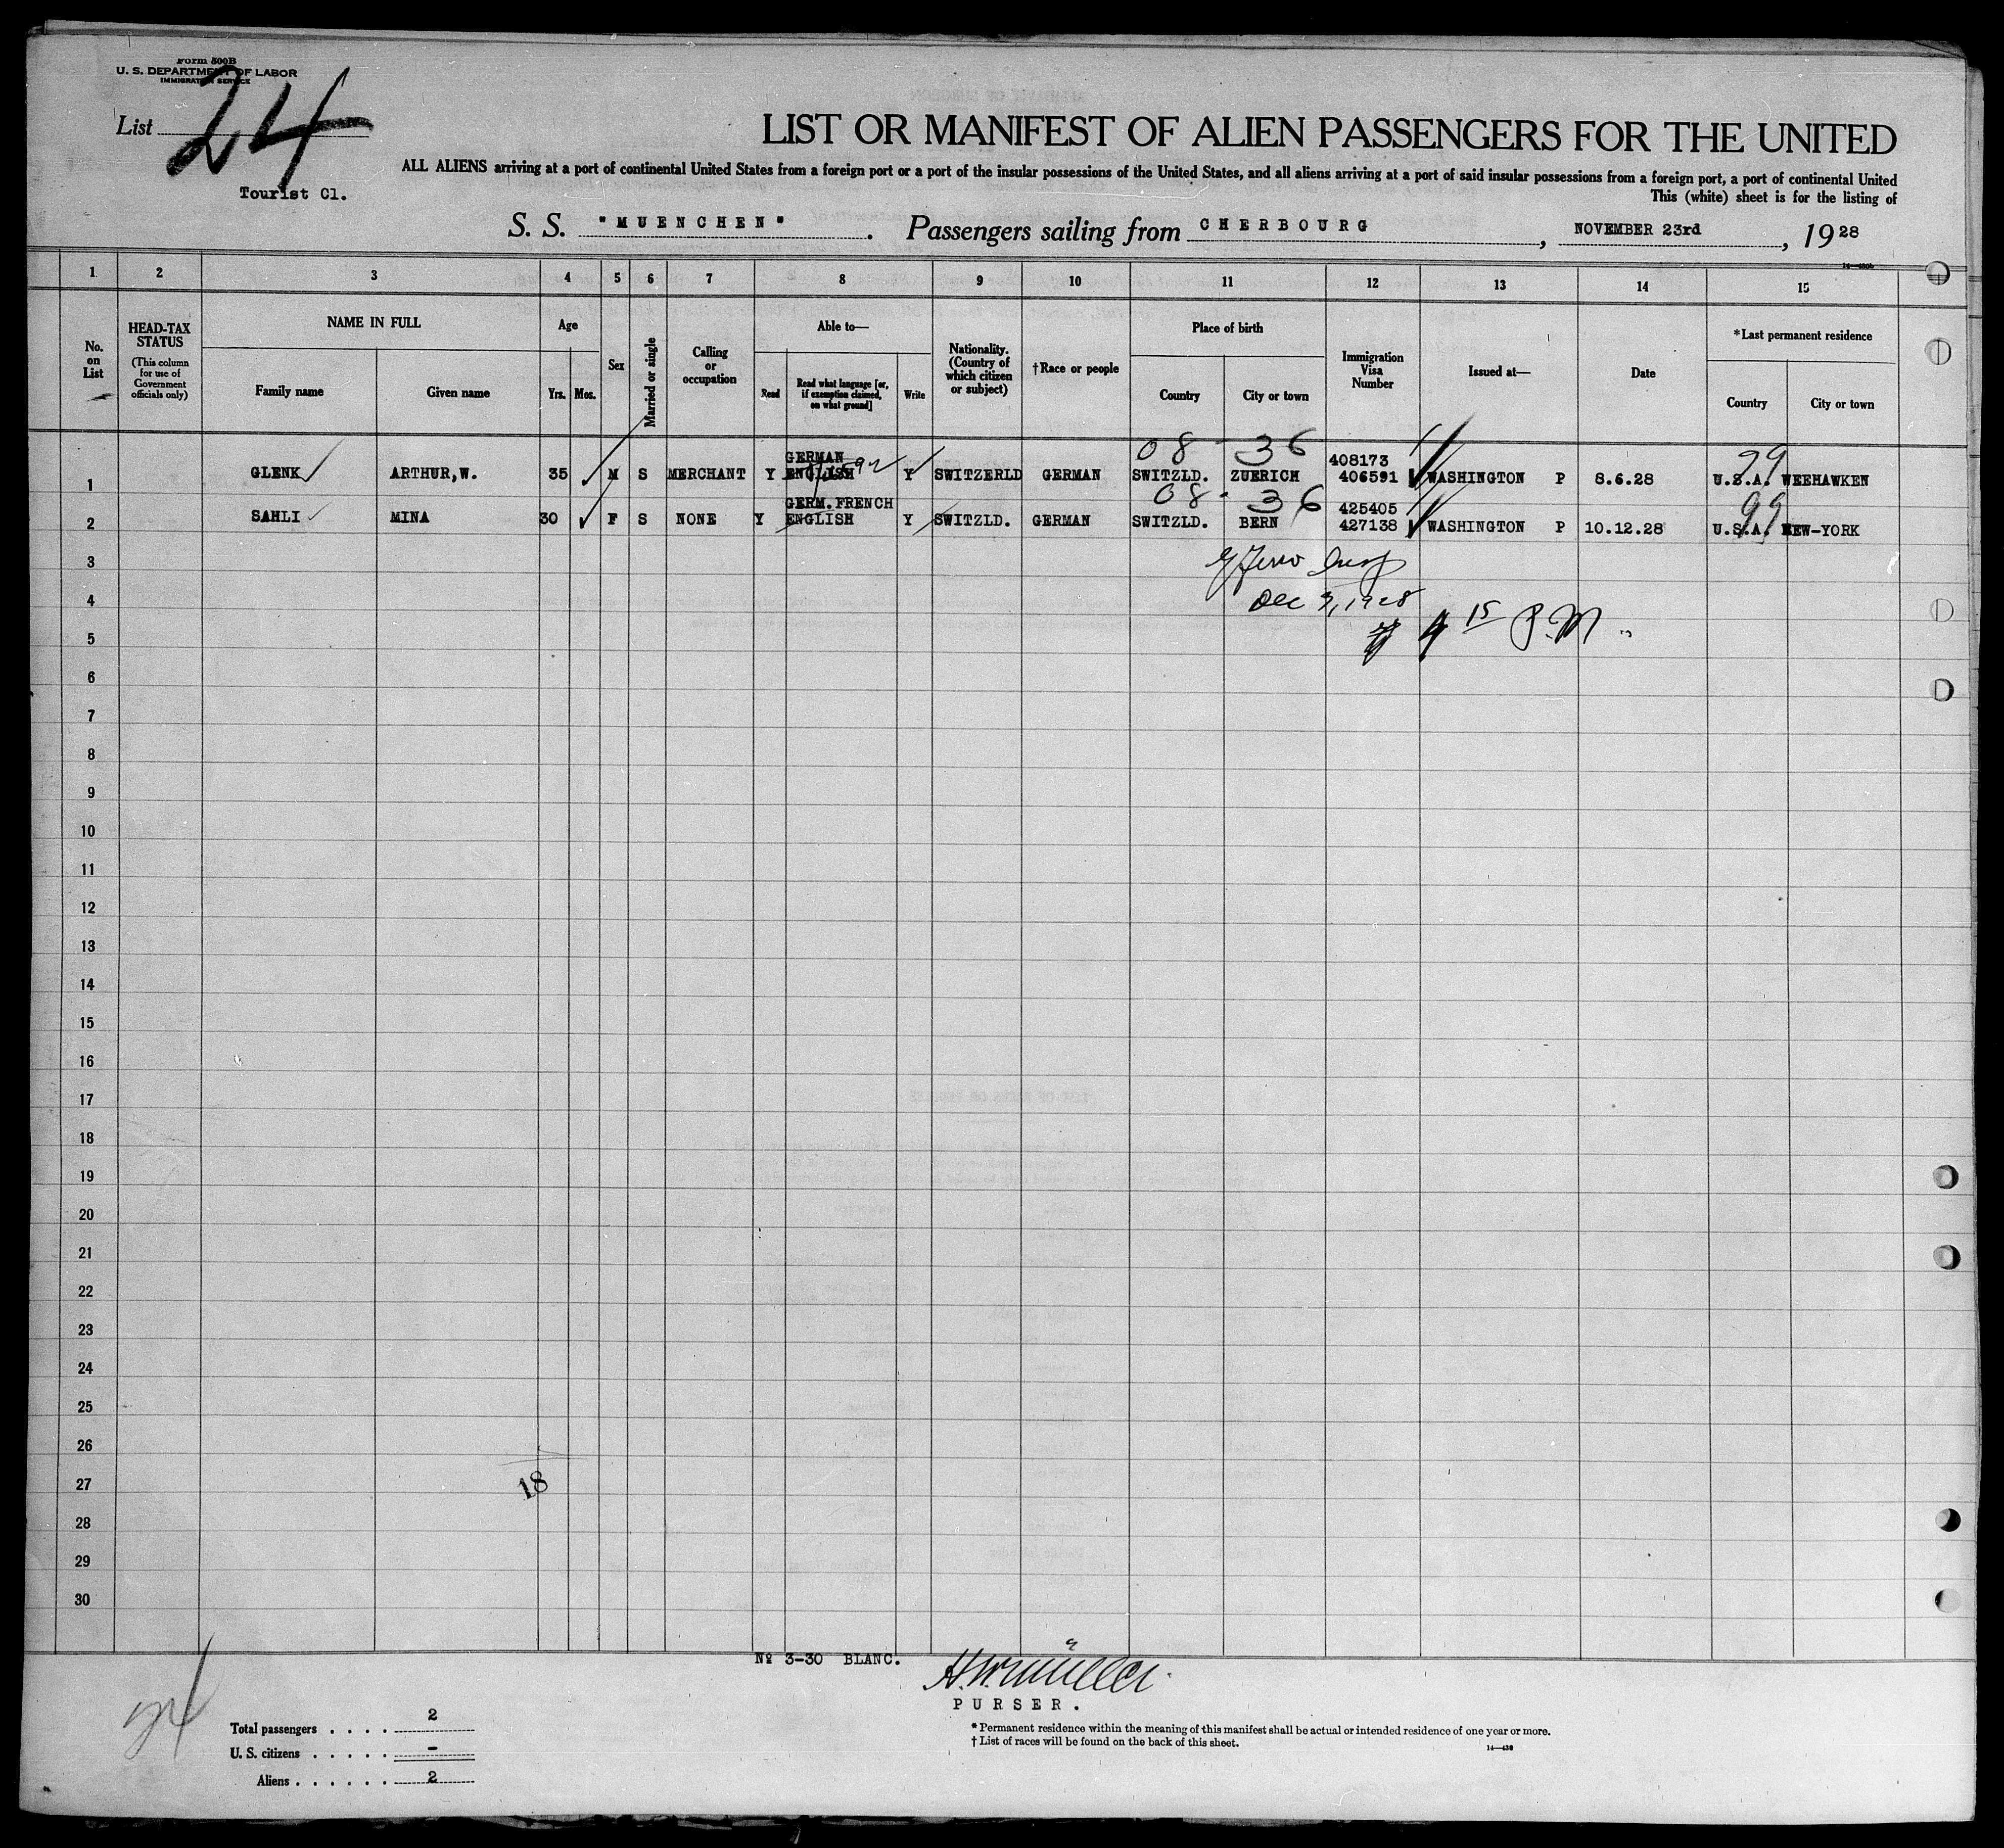 Form 500B
U. S. DEPARTMENT OF LABOR
IMMIGRATION SERVICE
List 24
Tourist Cl.
LIST OR MANIFEST OF ALIEN PASSENGERS FOR THE UNITED
ALL ALIENS arriving at a port of continental United States from a foreign port or a port of the insular possessions of the United States, and all aliens arriving at a port of said insular possessions from a foreign port, a port of continental United
This (white) sheet is for the listing of
S. S. "MUENCHEN". Passengers sailing from CHERBOURG, NOVEMBER 23rd, 1928
1 2 3 4 5 6 7 8 9 10 11 12 13 14 15
No. on List
HEAD-TAX STATUS
(This column for use of Government officials only)
NAME IN FULL
Family name Given name
Age
Yrs. Mos.
Sex
Married or single
Calling or occupation
Able to—
Read
Read what language [or, if exemption claimed, on what ground]
Write
Nationality. (Country of which citizen or subject)
†Race or people
Place of birth
Country City or town
Immigration Visa Number
Issued at—
Date
*Last permanent residence
Country City or town
08 36 99
GERMAN 408173
1 GLENK ARTHUR,W. 35 M S MERCHANT Y ENGLISH Y SWITZERLD GERMAN SWITZLD. ZUERICH 406591 WASHINGTON P 8.6.28 U.S.A. WEEHAWKEN
08 36 99
GERM.FRENCH 425405
2 SAHLI MINA 30 F S NONE Y ENGLISH Y SWITZLD. GERMAN SWITZLD. BERN 427138 WASHINGTON P 10.12.28 U.S.A. NEW-YORK
3
4 Dec 3, 1928
5 4 15 P.M.
6
7
8
9
10
11
12
13
14
15
16
17
18
19
20
21
22
23
24
25
26
27 18
28
29
30
Nº 3-30 BLANC.
H.W. Müller
PURSER.
Total passengers . . . . 2
U. S. citizens . . . . . -
Aliens . . . . . . 2
* Permanent residence within the meaning of this manifest shall be actual or intended residence of one year or more.
† List of races will be found on the back of this sheet.